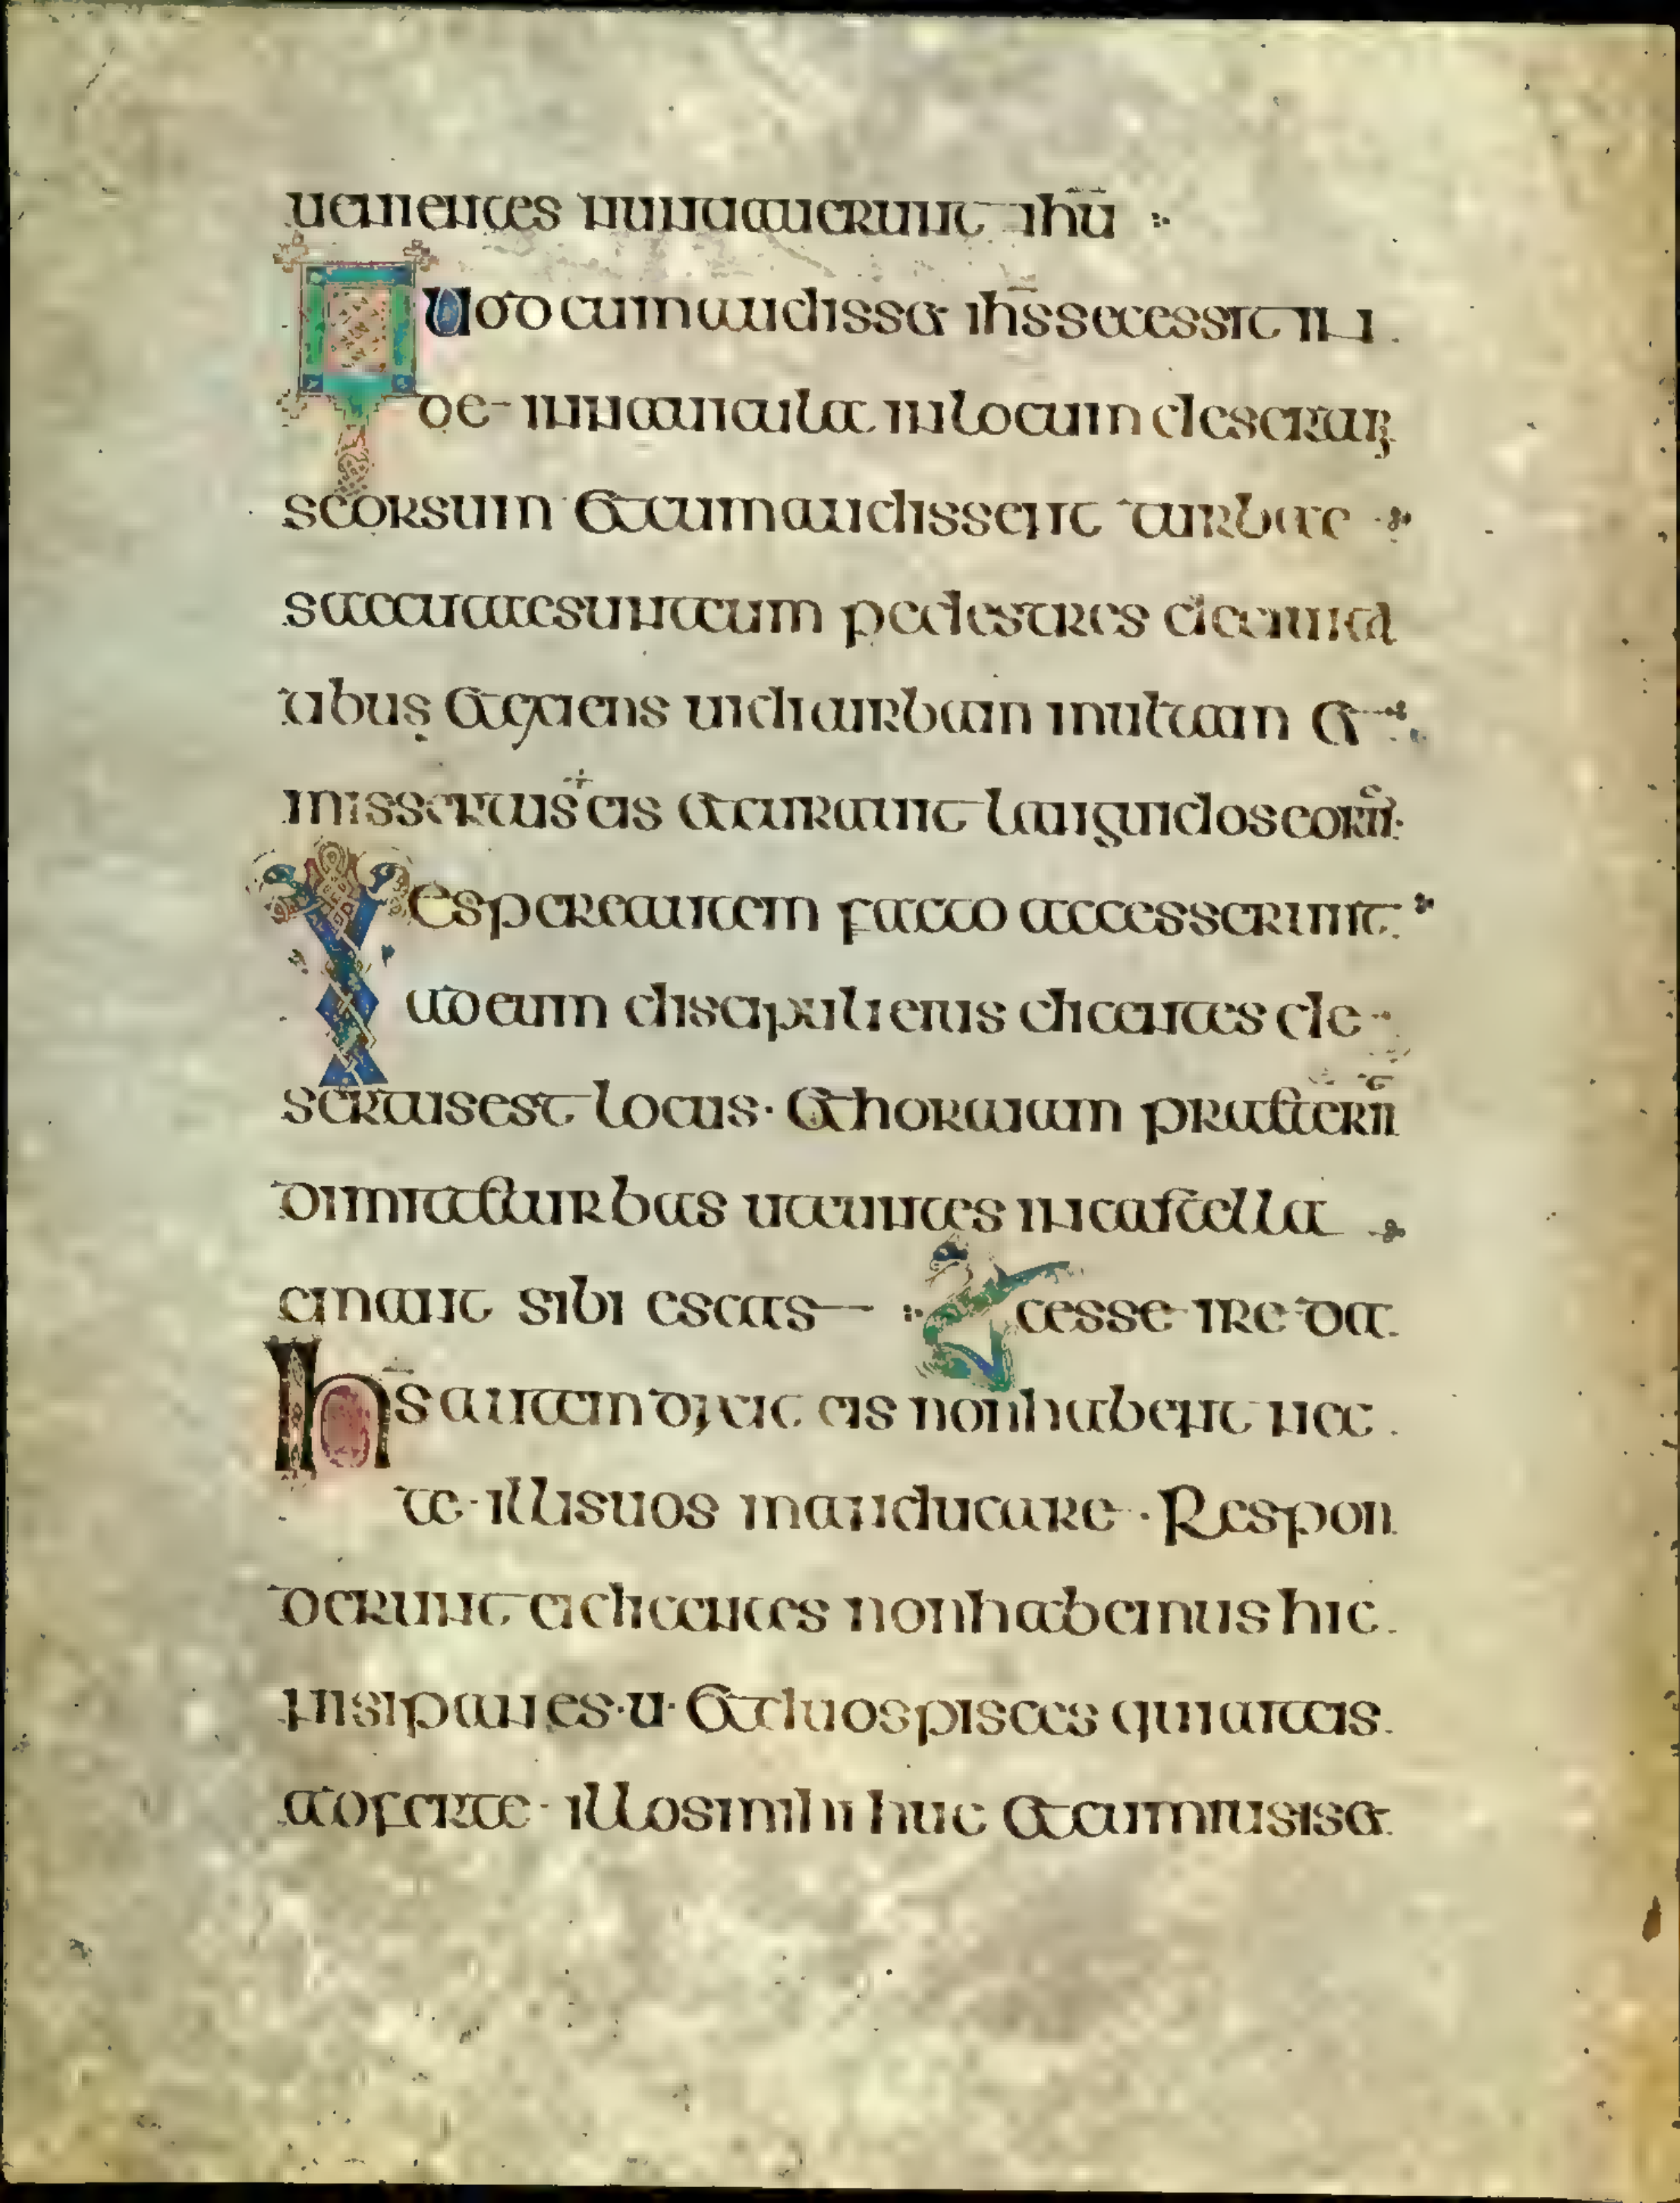 uenientes nuntiauerunt ihū
Quod cum audisset ihs secessit in
de in nauicula in locum desertum
seorsum et cum audissent turbae
saecutae sunt eum pedestres de ciuita
tibus et exiens uidit turbam multam et
missertus eis et curauit languidos eorū
Vespere autem facto accesserunt
ad eum discipuli eius dicentes de
sertus est locus· et hora iam praeterii
dimitte turbas ut euntes in castella
emant sibi escas
cesse ire da
hs autem dixit eis non habent nec
te illis uos manducare · Respon
derunt ei dicentes non habemus hic
nisi panes·u· et duos pisces qui ait eis
adferte · illos mihi huc et cum iusiset